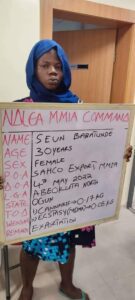 NDLEA MMIA COMMAND
NAME SEUN BABATUNDE
AGE 30YEARS
FEMALE
P.O.A SAHCO EXPORT, MMIA
D.O.A 4TH MAY 2022
L.G.A ABEOKUTA NORTH
STATE OGUN
T.O.D
WEIGHT
EXPORTATION